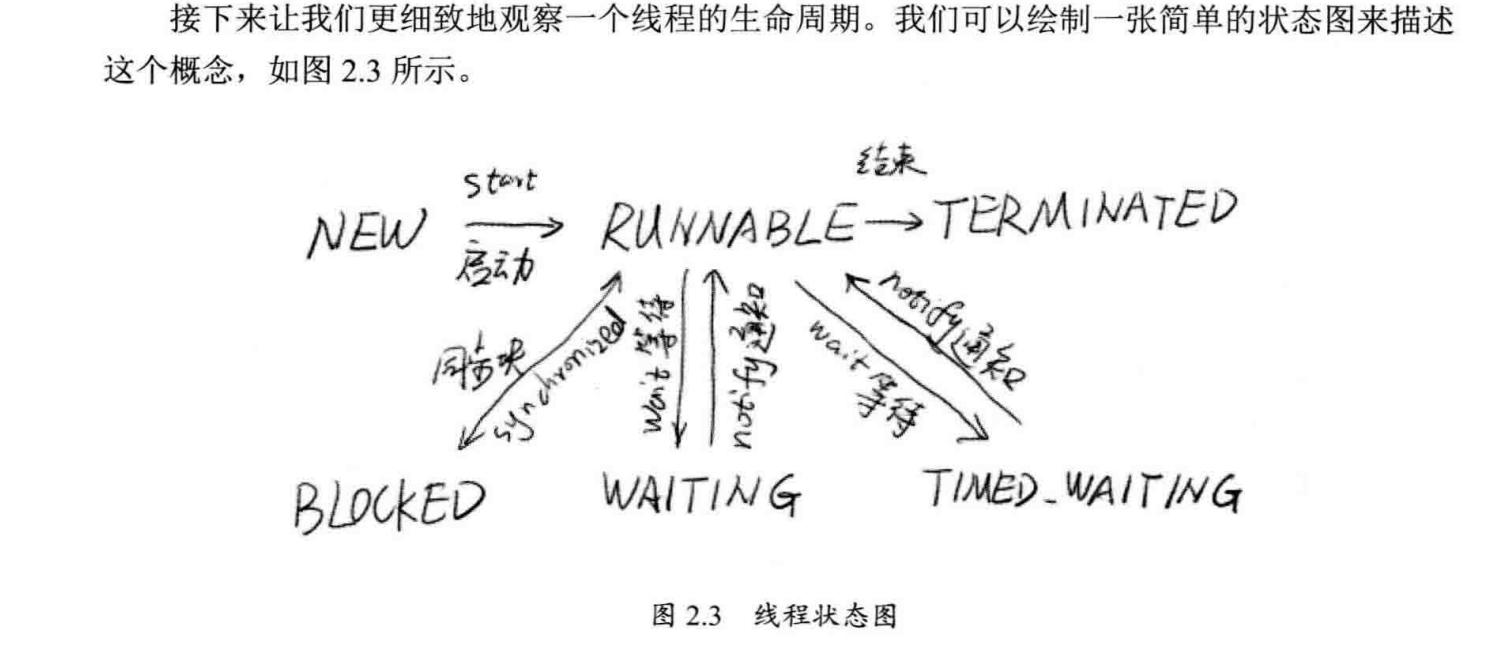 接下来让我们更细致地观察一个线程的生命周期。我们可以绘制一张简单的状态图来描述
这个概念，如图 2.3 所示。
start
结束
NEW
RUNNABLE
TERMINATED
启动
同步块
synchronized
wait 等待
notify 通知
wait 等待
notify 通知
BLOCKED
WAITING
TIMED_WAITING
图 2.3 线程状态图